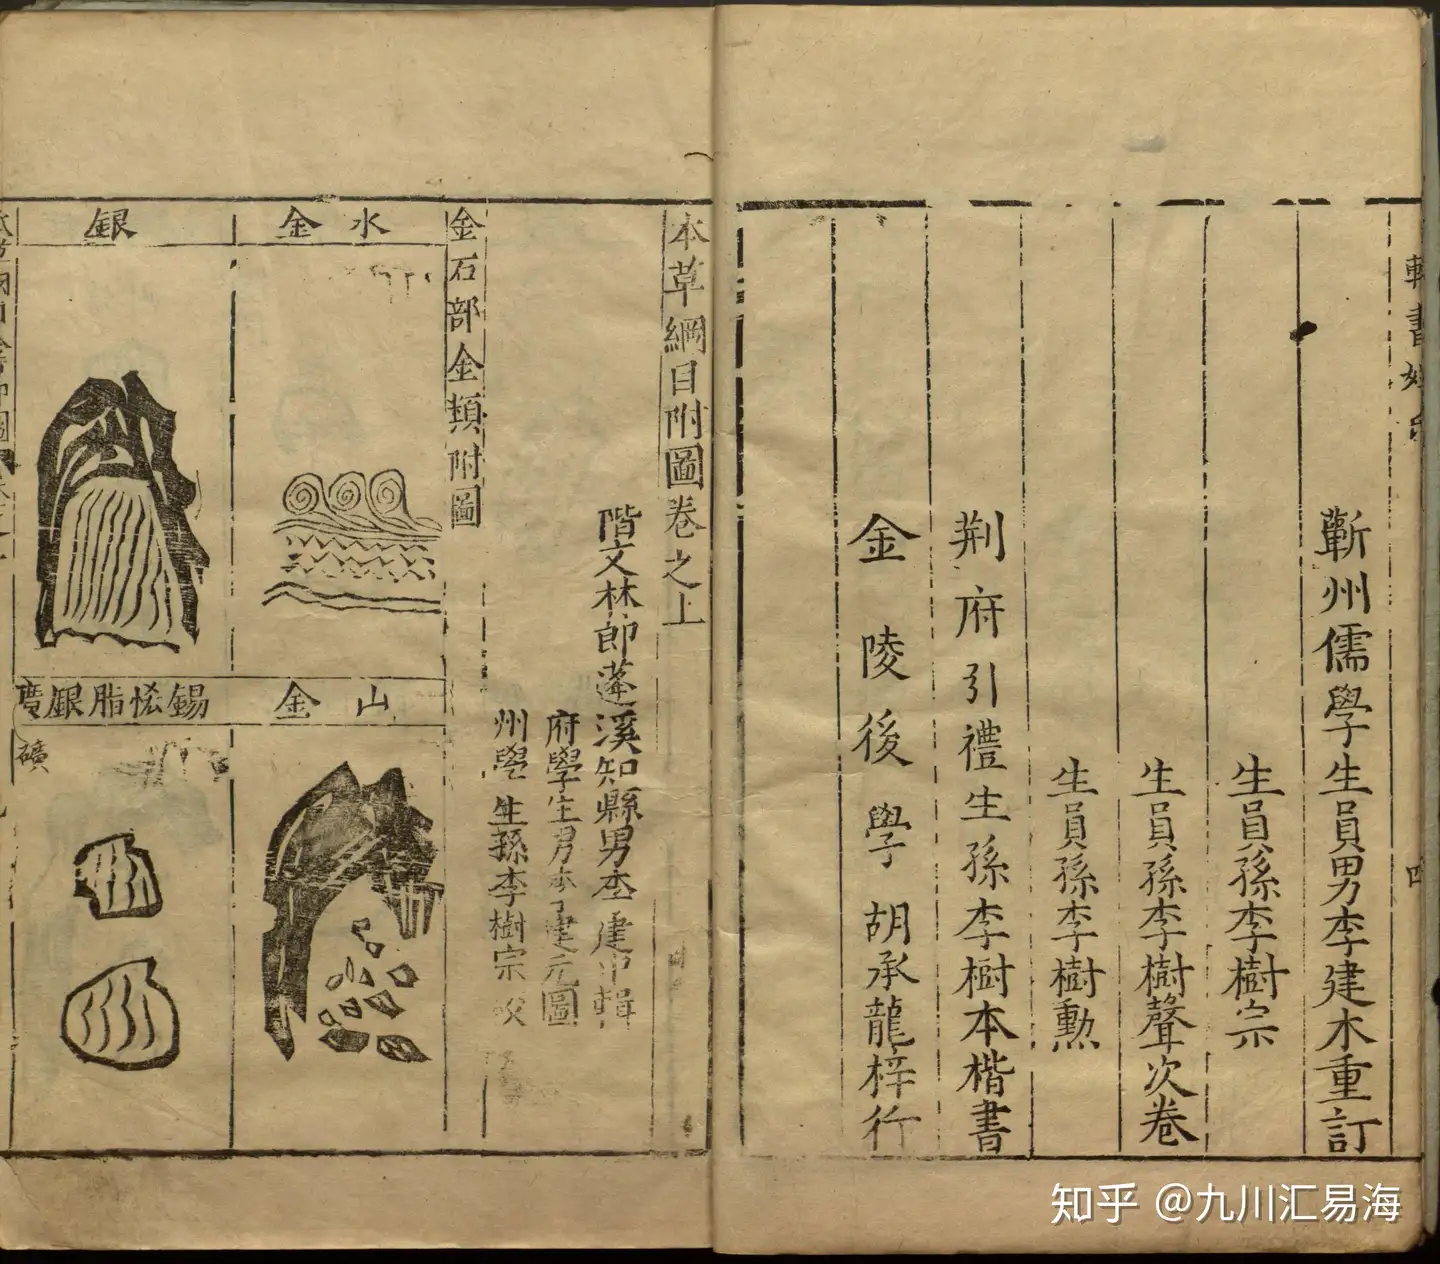 輯書姓氏
四
蘄州儒學生員男李建木重訂
生員孫李樹宗
生員孫李樹聲次卷
生員孫李樹勳
荆府引禮生孫李樹本楷書
金陵後學胡承龍梓行
本草綱目附圖卷之上
階文林郎蓬溪知縣男李建中輯
府學生男李建元圖
州學生孫李樹宗校
金石部金類附圖
水金
山金
銀
錫恡脂銀廣
礦
知乎 @九川汇易海